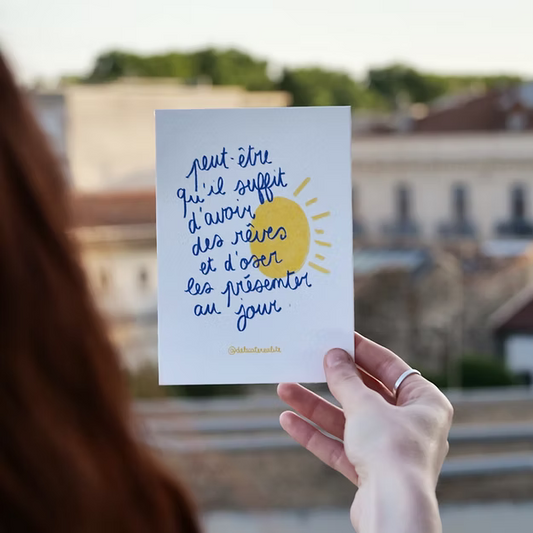 peut-être
qu'il suffit
d'avoir
des rêves
et d'oser
les présenter
au jour.